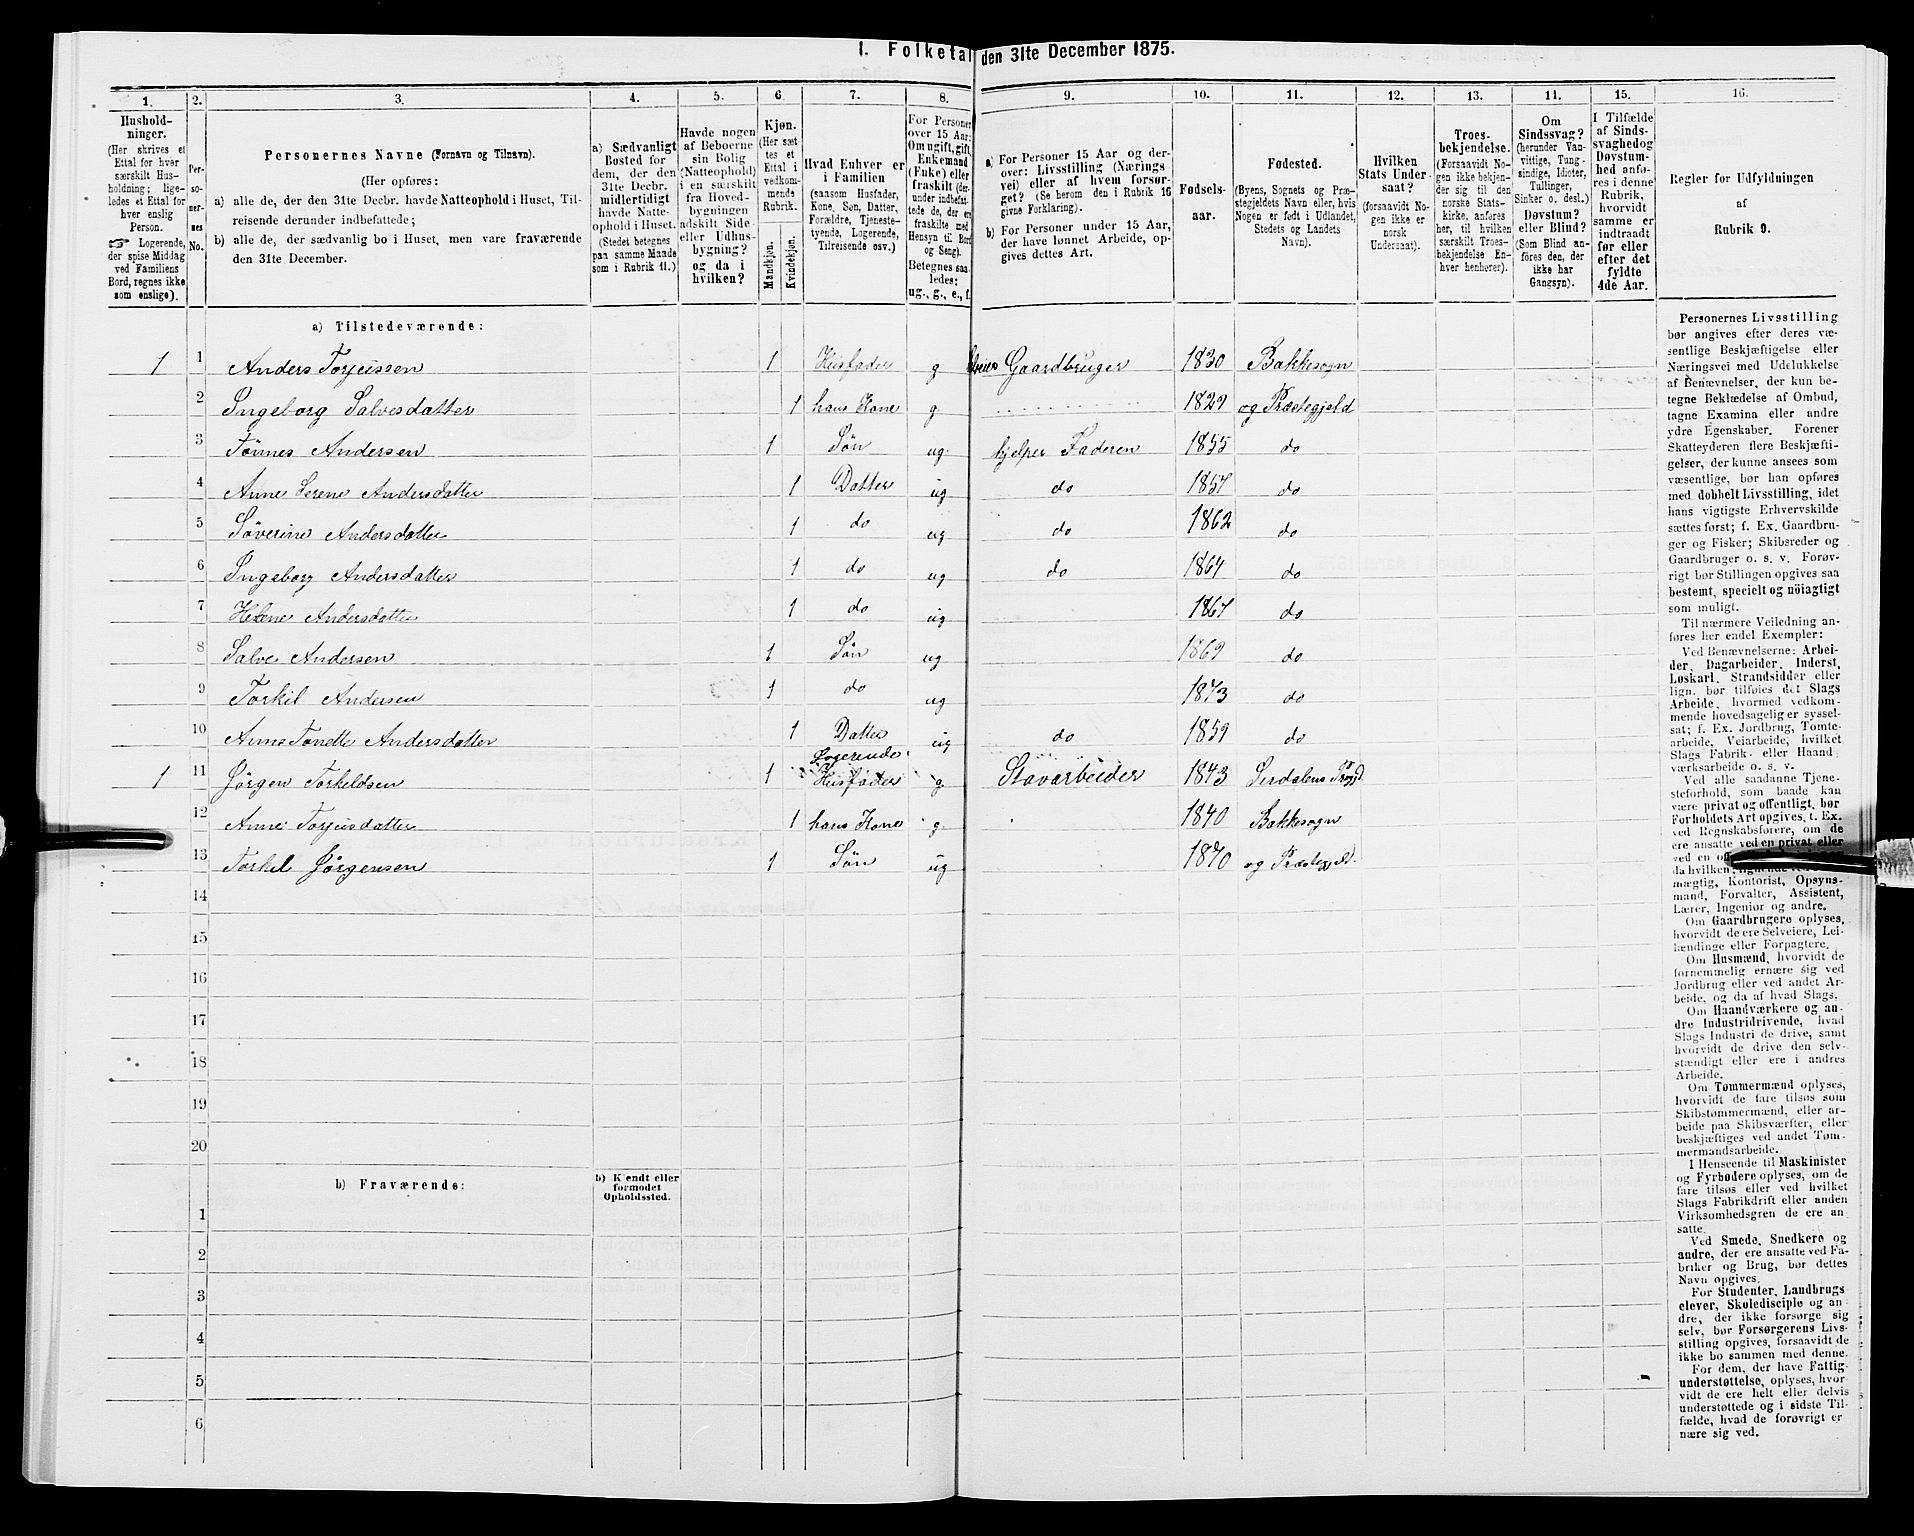 1. Folketal den 31te December 1875.
1. 2. 3. 4. 5. 6. 7. 8. 9. 10. 11. 12. 13. 14. 15. 16.
Hushold-
ninger.
(Her skrives et
Ettal for hver
særskilt Hus-
holdning; lige-
ledes et Ettal for
hver enslig
Person.
☞ Logerende,
der spise Middag
ved Familiens
Bord, regnes ikke
som enslige).
Per-
so-
ner-
nes
No.
Personernes Navne (Fornavn og Tilnavn).
(Her opføres:
a) alle de, der den 31te Decbr. havde Natteophold i Huset, Til-
reisende derunder indbefattede;
b) alle de, der sædvanlig bo i Huset, men vare fraværende
den 31te December.
a) Sædvanligt
Bosted for
dem, der den
31te Decbr.
midlertidigt
havde Natte-
ophold i Huset.
(Stedet betegnes
paa samme Maade
som i Rubrik 11.)
Havde nogen
af Beboerne
sin Bolig
(Natteophold)
i en særskilt
fra Hoved-
bygningen
adskilt Side-
eller Udhus-
bygning?
og da i
hvilken?
Kjøn.
(Her sæt
tes et
Ettal i
vedkom-
mende
Rubrik.
Mandkjøn.
Kvindekjøn.
Hvad Enhver er
i Familien
(saasom Husfader,
Kone, Søn, Datter,
Forældre, Tjeneste-
tyende, Logerende,
Tilreisende osv.)
For Personer
over 15 Aar:
Om ugift, gift,
Enkemand
(Enke) eller
fraskilt (der-
under indbefat-
tede de, der ere
fraskilte med
Hensyn til Bord
og Seng).
Betegnes saa-
ledes:
ug., g., e., f.
a) For Personer 15 Aar og der-
over: Livsstilling (Nærings
vei) eller af hvem forsør-
get? (Se herom den i Rubrik 16
givne Forklaring).
b) For Personer under 15 Aar,
der have lønnet Arbeide, op-
gives dettes Art.
Fødsels-
aar.
Fødested.
(Byens, Sognets og Præ-
stegjeldets Navn eller, hvis
Nogen er født i Udlandet,
Stedets og Landets
Navn).
Hvilken
Stats Under-
saat?
(forsaavidt No-
gen ikke er
norsk
Undersaat).
Troes-
bekjendelse.
(Forsaavidt No-
gen ikke bekjen-
der sig til den
norske Stats-
kirke, anføres
her, til hvilken
særskilt Troes-
bekjendelse En-
hver henhører).
Om
Sindssvag?
(herunder Van-
vittige, Tung-
sindige, Idioter,
Tullinger,
Sinker o. desl.)
Døvstum?
eller Blind?
(Som Blind an-
føres den, der
ikke har
Gangsyn).
I Tilfælde
af Sinds-
svaghed og
Døvstum-
hed anfø-
res i denne
Rubrik,
hvorvidt
samme er
indtraadt
før eller
efter det
fyldte
4de Aar.
Regler for Udfyldningen
af
Rubrik 9.
a) Tilstedeværende:
1 1 Anders Torjussen 1 Husfader g Gaardbruger 1830 Bakkesogn
2 Ingeborg Salvesdatter 1 hans Kone g. 1829 og Præstegjeld
3 Tönnes Andersen 1 Sön ug. hjelper Faderen 1855 do
4 Anne Serene Andersdatter 1 Datter ug do 1857 do
5 Söverine Andersdatter 1 do ug do 1862 do
6 Ingeborg Andersdatter 1 do ug do 1864 do
7 Helene Andersdatter 1 do ug 1867 do
8 Salve Andersen 1 Sön ug 1869 do
9 Torkil Andersen 1 do ug 1873 do
10 Anne Tonette Andersdatter 1 Datter ug do 1859 do
Logerende
1 11 Jörgen Torkeldsen 1 Husfader g. Stavarbeider 1843 Sirdalens
12 Anne Torjusdatter 1 hans Kone g. 1840 Bakkesogn
13 Torkil Jörgensen 1 Sön ug 1870 og Præstegjeld.
14
15
16
17
18
19
20
b) Fraværende:
b) Kjendt eller
formodet
Opholdssted.
1
2
3
4
5
6
Personernes Livsstilling
bør angives efter deres væ-
sentlige Beskjæftigelse eller
Næringsvei med Udelukkelse
af Benævnelser, der kun be-
tegne Beklædelse af Ombud,
tagne Examina eller andre
ydre Egenskaber. Forener
Skatteyderen flere Beskjæfti-
gelser, der kunne ansees som
væsentlige, bør han opføres
med dobbelt Livsstilling, idet
hans vigtigste Erhvervskilde
sættes først; f. Ex. Gaardbru-
ger og Fisker; Skibsreder og
Gaardbruger o. s. v. Forøv-
rigt bør Stillingen opgives saa
bestemt, specielt og nöiagtigt
som muligt.
Til nærmere Veiledning an-
føres her endel Exempler:
Ved Benævnelserne: Arbei-
der, Dagarbeider, Inderst,
Løskarl, Strandsidder eller
lign. bør tilføies det Slags
Arbeide, hvormed vedkom-
mende hovedsagelig er syssel-
sat; f. Ex. Jordbrug, Tomte-
arbeide, Veiarbeide, hvilket
Slags Fabrik- eller Haand
værksarbeide o. s. v.
Ved alle saadanne Tjene-
steforhold, som baade kan
være privat og offentligt, bør
Forholdets Art opgives, t. Ex.
ved Regnskabsførere, om de
ere ansatte ved en privat eller
ved en
da hvilken;
mægtig, Kontorist, Opsyns-
mand, Forvalter, Assistent,
Lærer, Ingeniør og andre.
Om Gaardbrugere oplyses,
hvorvidt de ere Selveiere, Lei-
lændinge eller Forpagtere.
Om Husmænd, hvorvidt de
fornemmelig ernære sig ved
Jordbrug eller ved andet Ar-
beide, og da af hvad Slags.
Om Haandværkere og an-
dre Industridrivende, hvad
Slags Industri de drive, samt
hvorvidt de drive den selv-
stændigt eller ere i andres
Arbeide.
Om Tømmermænd oplyses,
hvorvidt de fare tilsøs som
Skibstømmermænd, eller ar-
beide paa Skibsværfter, eller
beskjæftiges ved andet Tøm-
mermandsarbeide.
I Henseende til Maskinister
og Fyrbødere oplyses, om de
fare tilsøs eller ved hvilket
Slags Fabrikdrift eller anden
Virksomhedsgren de ere an-
satte.
Ved Smede, Snedkere og
andre, der ere ansatte ved Fa-
briker og Brug, bør dettes
Navn opgives.
For Studenter, Landbrugs
elever, Skoledisciple og an
dre, der ikke forsørge sig
selv, bør Forsørgerens Livs-
stilling opgives, forsaavidt de
ikke bo sammen med denne.
For dem, der have Fattig-
understøttelse, oplyses, hvor-
vidt de ere helt eller delvis
understøttede og i sidste Til-
fælde, hvad de forøvrigt er
nære sig ved.